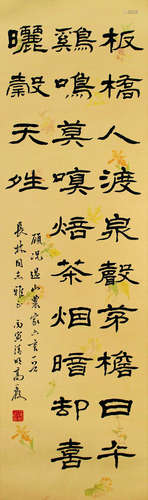 板橋人渡泉聲茅檐日午
鷄鳴莫嗔焙茶烟暗却喜
曬穀天姓
顧況過山農家六言一首
長林同志雅正丙寅清明高嚴